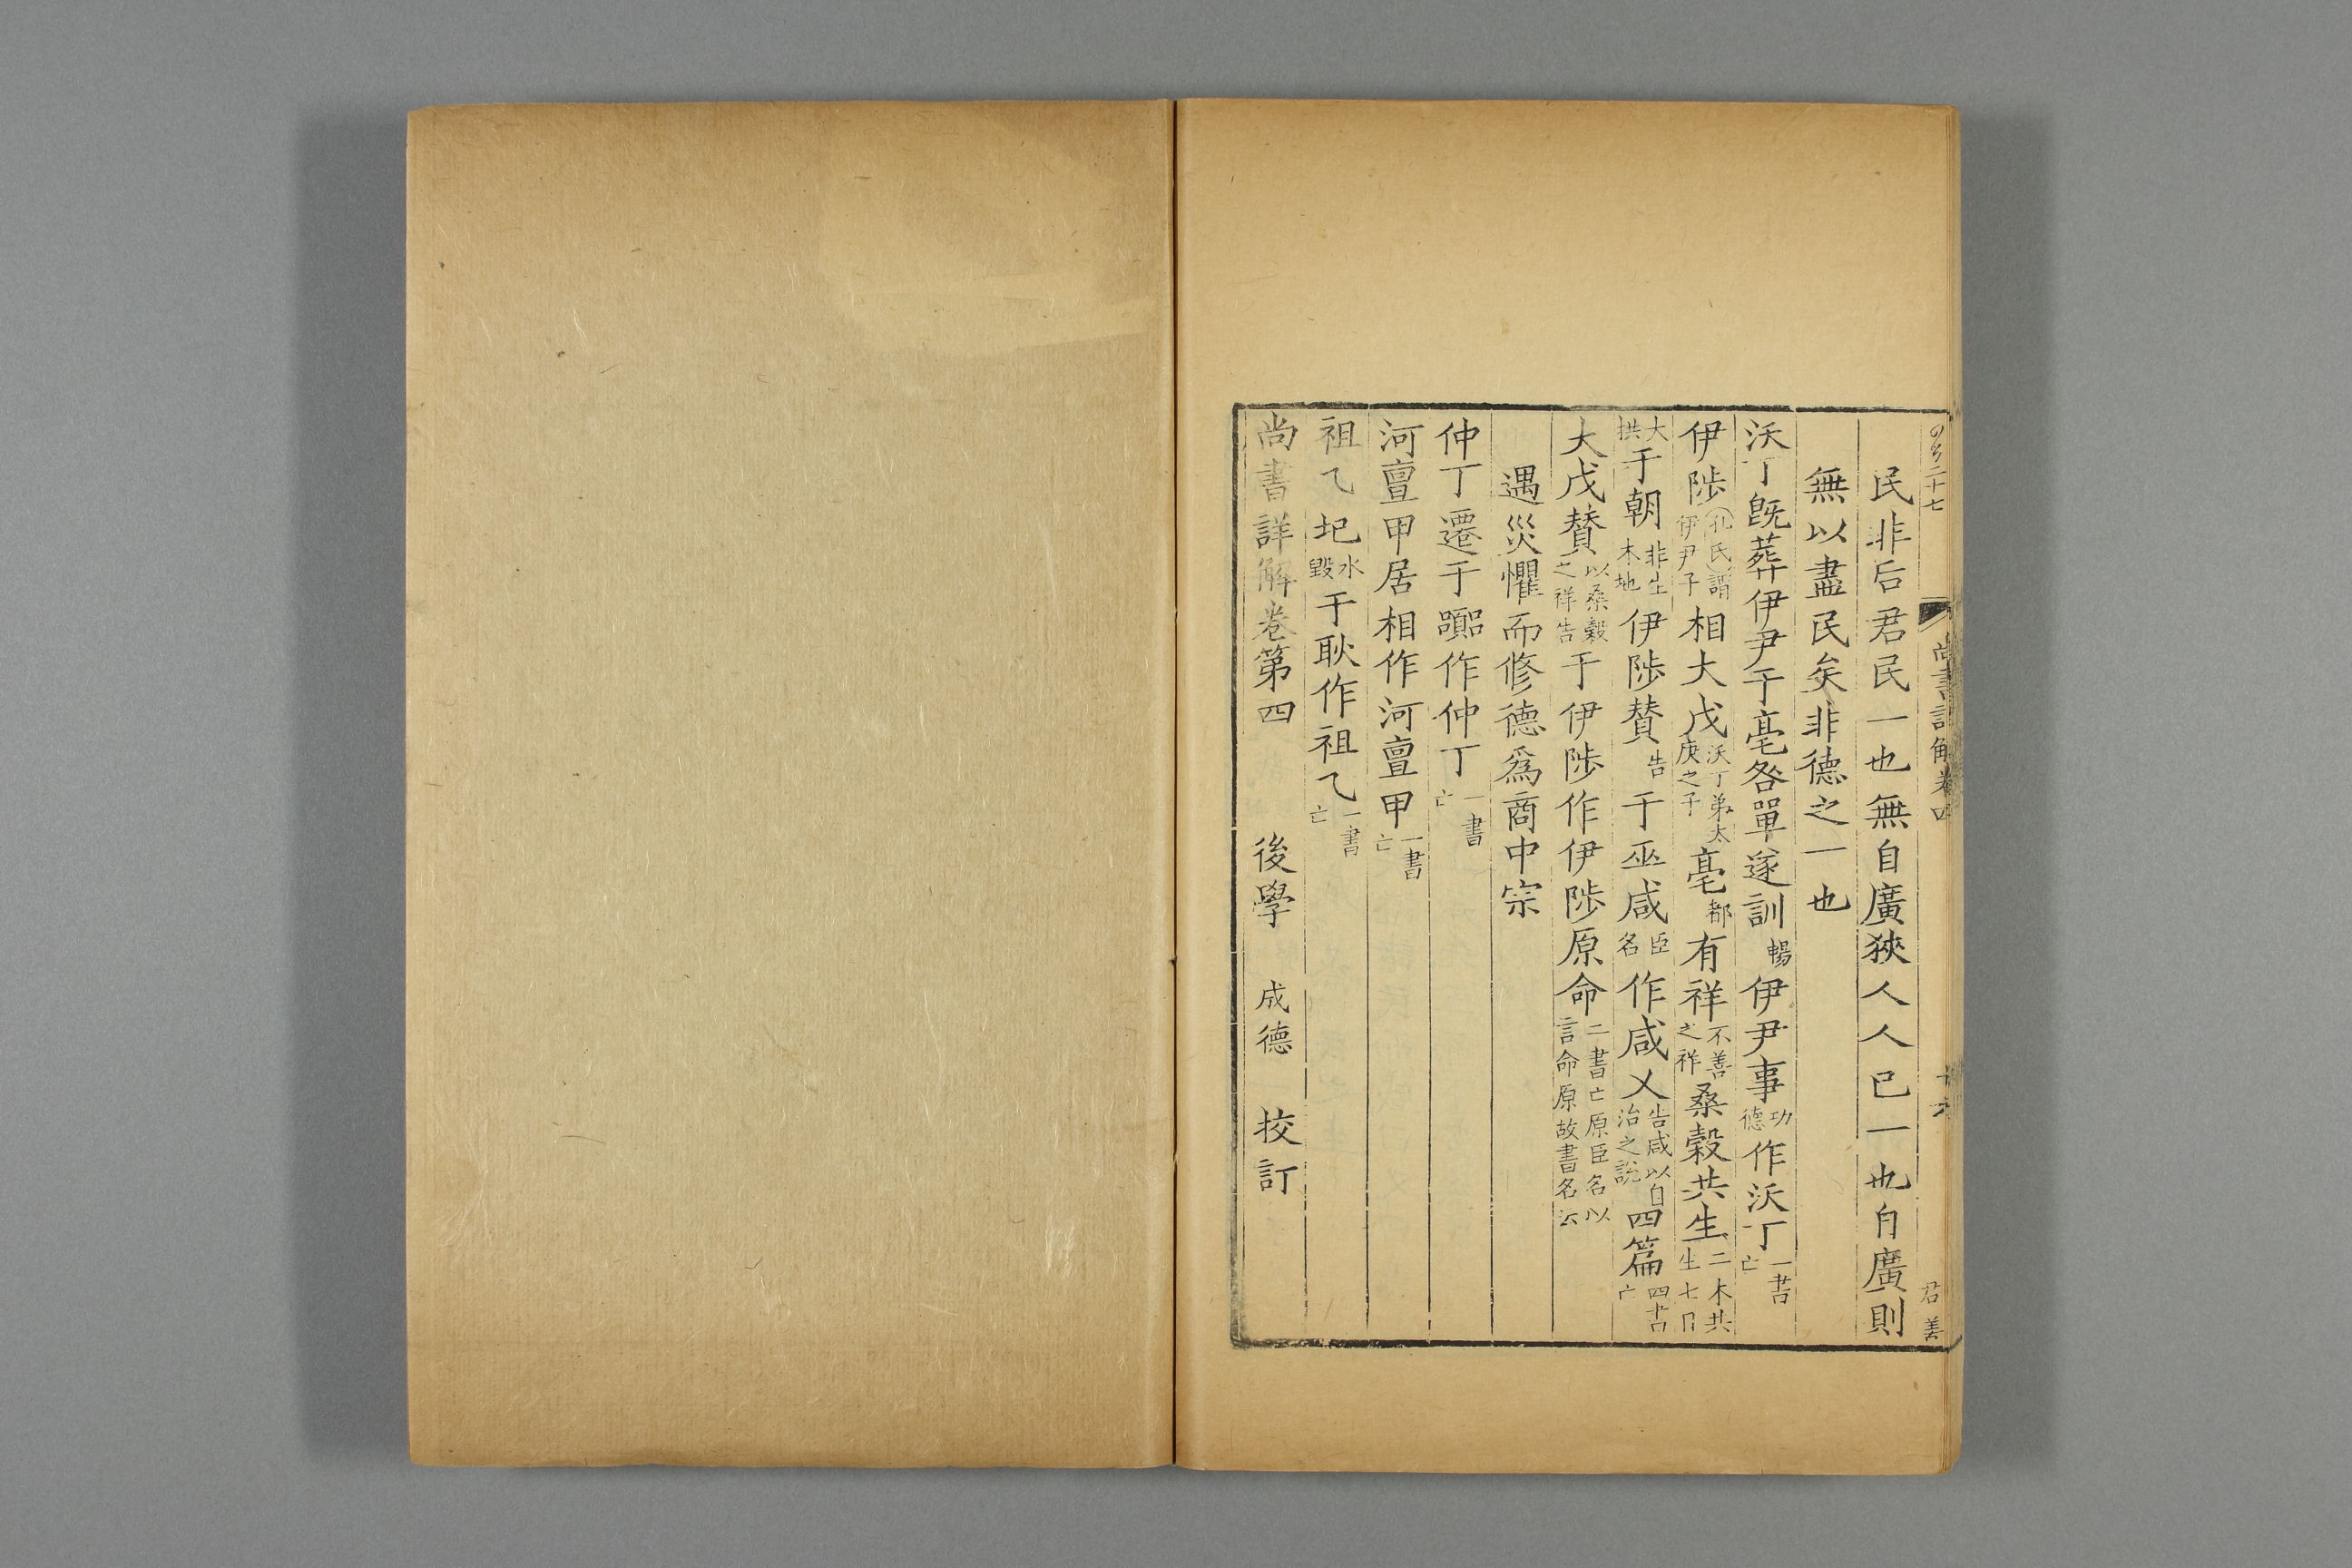 民非后君民一也無自廣狹人人已一也自廣則
無以盡民矣非德之一也
沃丁既葬伊尹于亳咎單遂訓暢伊尹事功德作沃丁一書亡
伊陟孔氏謂伊尹子相大戊沃丁弟太庚之子亳都有祥不善之祥桑穀共生二木共生七日
大拱于朝非生木地伊陟贊告于巫咸臣名作咸乂告咸以自治之說四篇四書亡
大戊贊以桑穀之祥告于伊陟作伊陟原命二書亡原臣名以言命原故書名云
遇災懼而修德爲商中宗
仲丁遷于囂作仲丁一書亡
河亶甲居相作河亶甲一書亡
祖乙圮水毀于耿作祖乙一書亡
尚書詳解卷第四 後學 成德 挍訂
尚書詳解卷四
君美